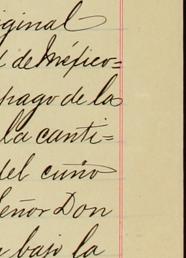 iginal
d de Méjico=
pago de la
la canti=
del cuño
señor Don
bajo la